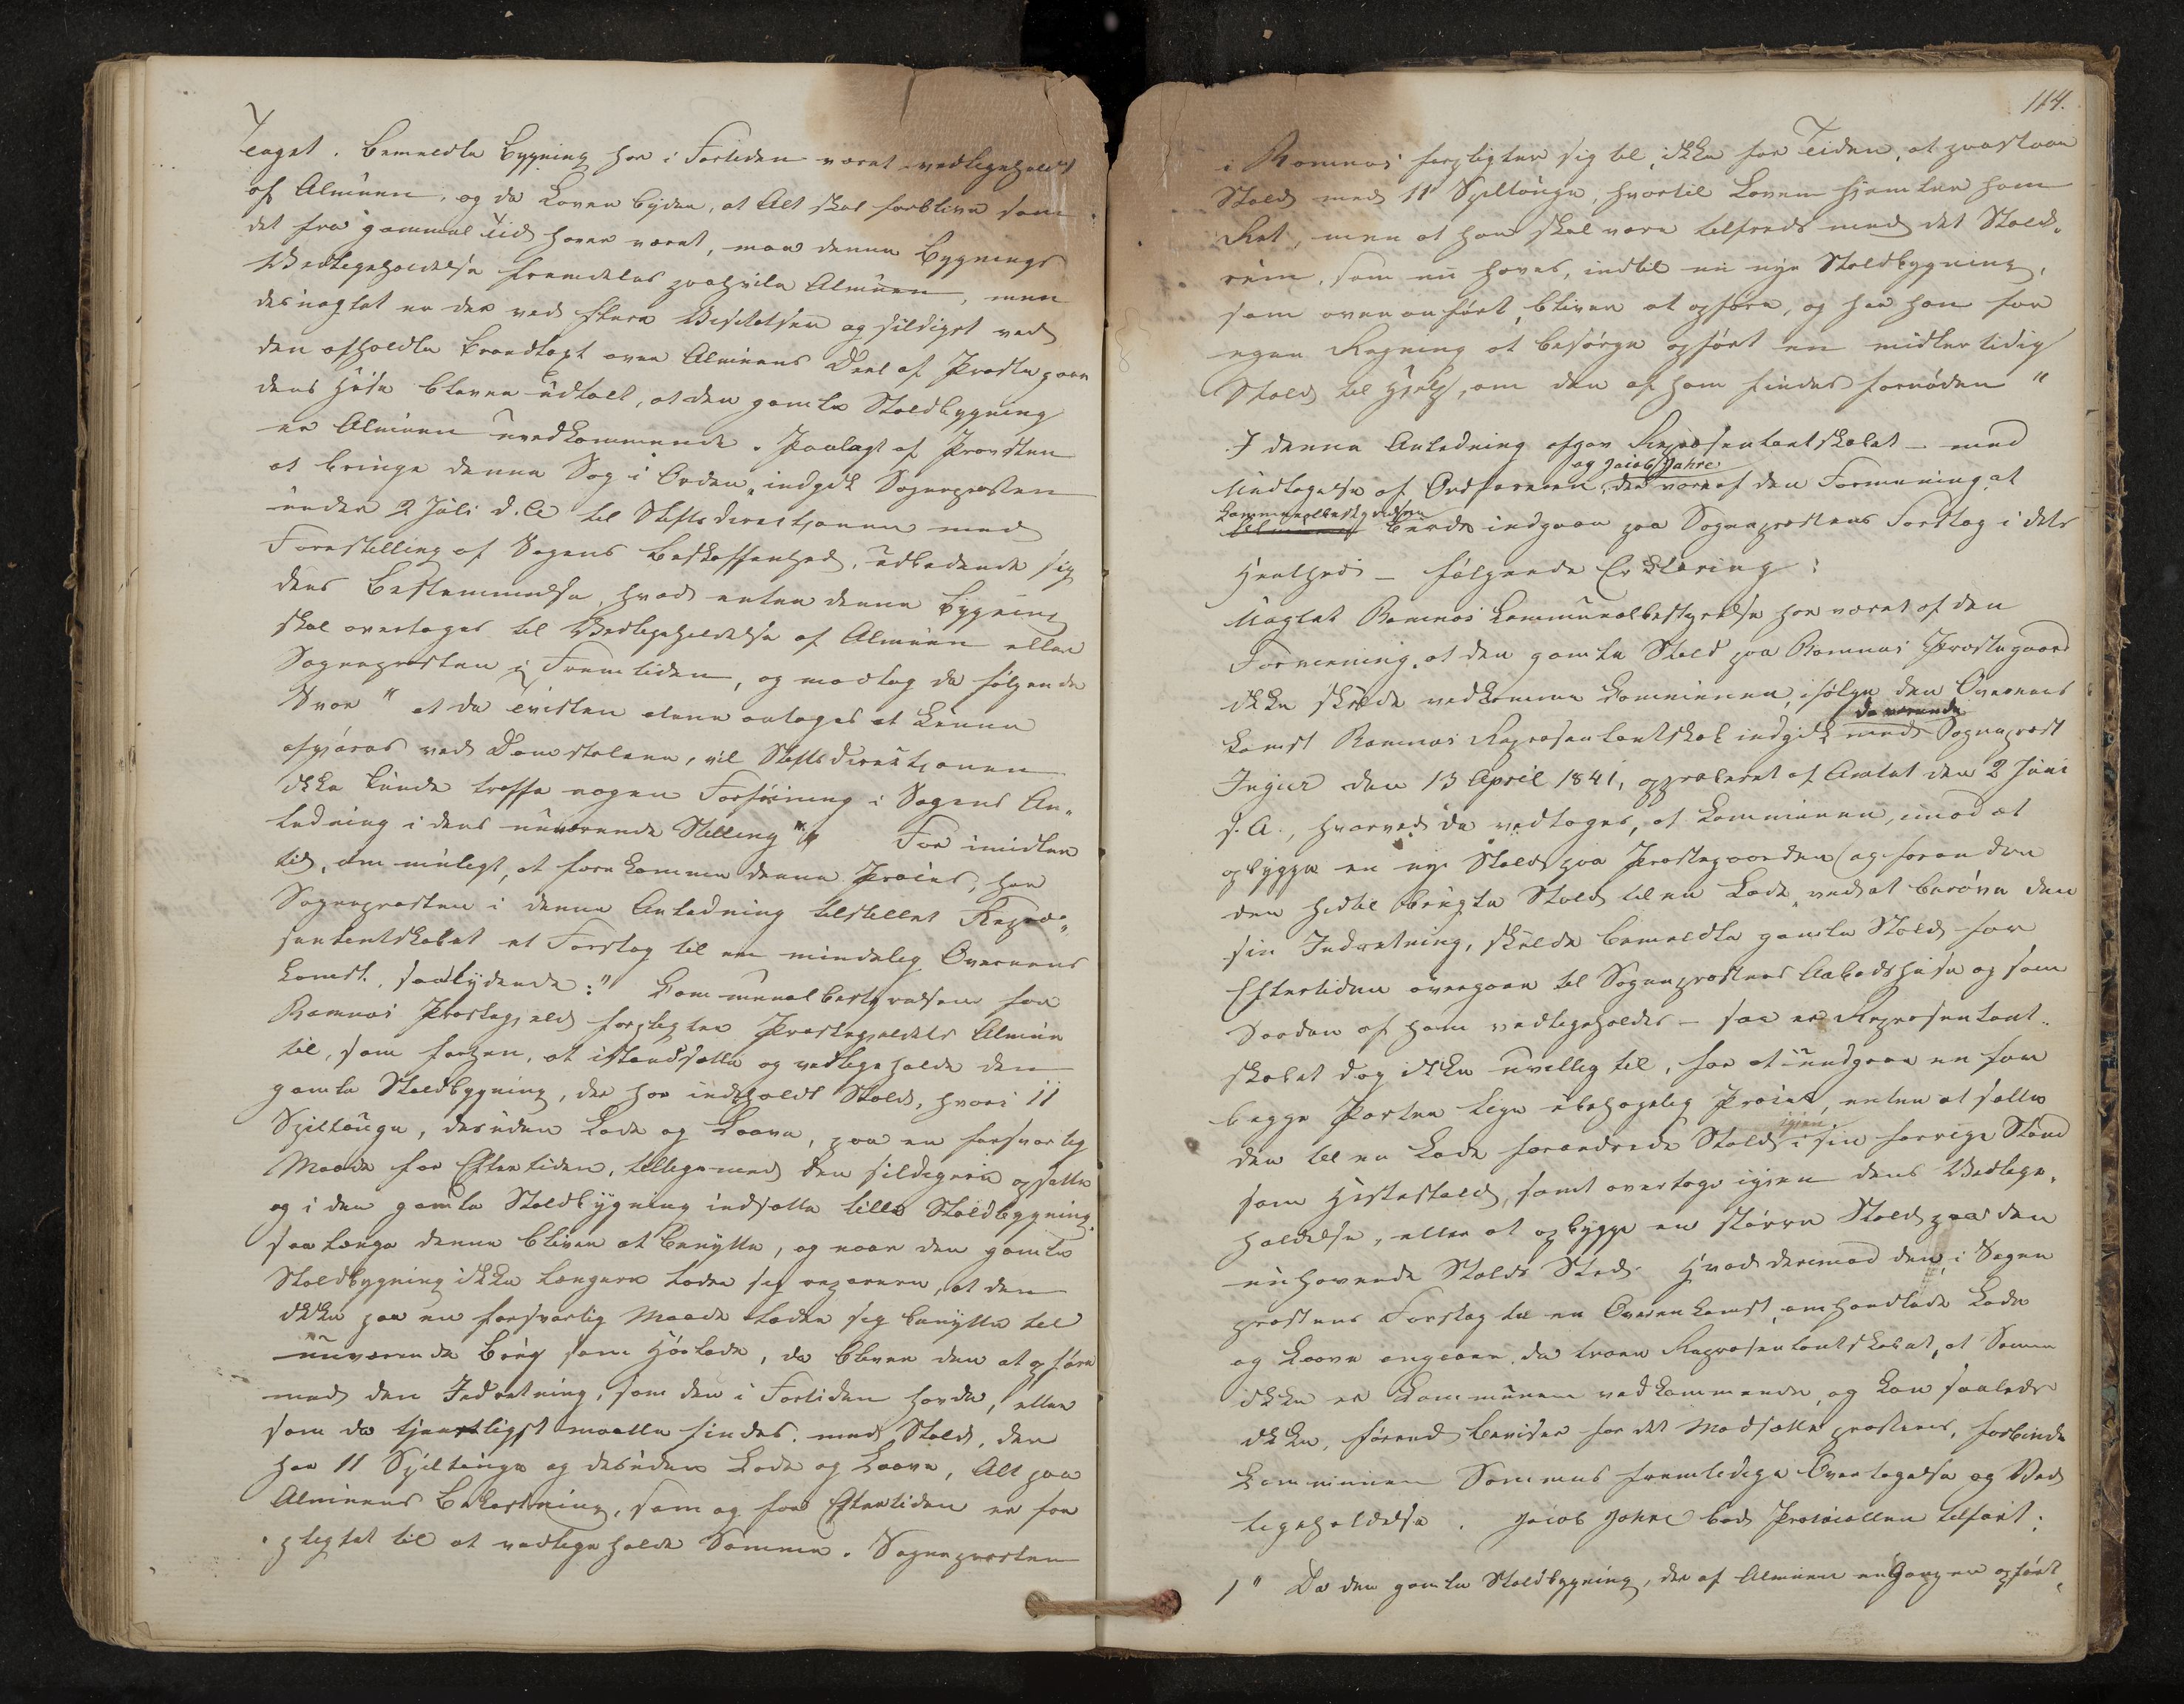 taget. Bemeldte Bygning har i Fortiden været vedligeholdt
af Almuen, og da Loven byder, at Alt skal forblive som
det fra gammel Tid haver været, maa denne Bygnings
Vedligeholdelse fremdeles paahvile Almuen, men
desuagtet er der ved flere Visitatser og sildigst ved
den afholdte Brandtaxt over Almuens Deel af Præstegaar
dens Huse bleven udtalt, at den gamle Staldbygning
er Almuen uvedkommende. Paalagt af Provsten
at bringe denne Sag i Orden, indgik Sognepræsten
under 2 Juli d. A. til Stiftsdirectionen med
Forestilling af Sagens Beskaffenhed, udbedende sig
dens Bestemmelse, hvad enten denne Bygning
skal overtages til Vedligeholdelse af Almuen eller
Sognepræsten i Fremtiden, og modtog da følgende
Svar " at da Tvisten alene antages at kunne
afgjøres ved Domstolene, vil Stiftsdirectionen
ikke kunde træffe nogen Forføining i Sagens An-
ledning i dens nuværende Stilling". For imidler
tid, om muligt, at forekomme denne Proces, har
Sognepræsten i denne Anledning tilstillet Repræ-
sentantskabet et Forslag til en mindelig Overeens
komst, saalydende: " Communalbestyrelsen for
Ramnæs Præstegjeld forpligter Præstegjeldets Almue
til, som forhen, at istandsætte og vedligeholde den
gamle Staldbygning, der har indeholdt Stald, hvori 11
Spiltouge, desuden Lade og Laave, paa en forsvarlig
Maade for Eftertiden, tilligemed den sildigere opsatte
og i den gamle Staldbygning indsatte lille Staldbygning
saa længe denne bliver at benytte, og naar den gamle
Staldbygning ikke længere lader sig reparere, at den
ikke paa en forsvarlig Maade lader sig benytte til
nuværende Brug som Hølade, da bliver den at opføre
med den Indretning, som den i Fortiden havde, eller
som da tjenligst maatte findes, med Stald, der
har 11 Spiltouge og desuden Lade og Laave, Alt paa
Almuens Bekostning, som og for Eftertiden er for
pligtet til at vedligeholde Samme. Sognepræsten
114.
i Ramnæs forpligter sig til ikke for Tiden, at paastaae
Stald med 11 Spiltouge, hvortil Loven hjemler ham
Ret, men at han skal være tilfreds med det Stald-
rum, som nu haves, indtil en nye Staldbygning,
som ovenanført, bliver at opføre, og har han for
egen Regning at besørge opført en midlertidig
Stald til Hjelp, om den af ham findes fornøden "
I denne Anledning afgav Repræsentantskabet – med
og Jacob Jahre
Undtagelse af Ordføreren, der vare af den Formening at
Kommunalbestyrelsen
Almuen burde indgaae paa Sognepræstens Forslag i dets
Heelhed – følgende Erklæring:
Uagtet Ramnæs Kommunalbestyrelse har været af den
Formening, at den gamle Stald paa Ramnæs Præstegaard
ikke skulde vedkomme Kommunen, ifølge den Overeens
daværende
komst Ramnæs Repræsentantskab indgik med Sognepræst
Ingier den 13 April 1841, approberet af Amtet den 2 Juni
s. A., hvorved da vedtoges, at Kommunen, imod at
opbygge en nye Stald paa Præstegaarden (og forandre
den hidtil brugte Stald til en Lade, ved at berøve den
sin Indretning, skulde bemeldte gamle Stald for
Eftertiden overgaae til Sognepræstens Aabodshuse og som
Saadan af ham vedligeholdes – saa er Repræsentant-
skabet dog ikke uvillig til, for at undgaae en for
begge Parter lige ubehagelig Proces, enten at sætte
igien
den til en Lade forandrede Stald i sin forrige Stand
som Hestestald, samt overtage igien dens Vedlige-
holdelse, eller at opbygge en større Stald paa den
nuhavende Stalds Sted. Hvad derimod den i Sogne
præstens Forslag til en Overenkomst omhandlede Lade
og Laave angaaer, da troer Repræsentantskabet, at Samme
ikke er Kommunen vedkommende, og kan saaledes
ikke, førend Beviser for det Modsatte præsteres, forbinde
Kommunen Sammes fremtidige Overtagelse og Ved
ligeholdelse. Jacob Jahre bad Protocollen tilført:
1" Da den gamle Staldbygning, der af Almuen en Gang er opført,